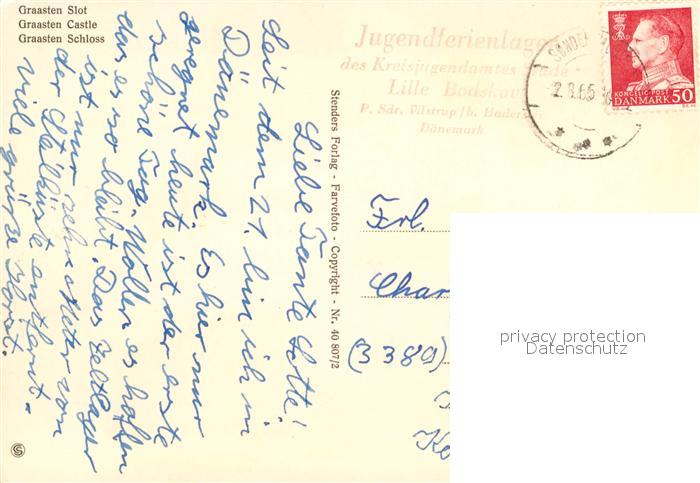 Graasten Slot
Graasten Castle
Graasten Schloss
Liebe Tante Lotte!
Seit dem 21. bin ich in
Dänemark. Es hier nur
geregnet heute ist der erste
schöne Tag. Wollen es hoffen
das es so bleibt. Das Zeltlager
ist nur zehn Meter von
der Steilküste entfernt.
Viele Grüße Horst.
Stenders Forlag - Farvefoto - Copyright - Nr. 40 807/2
Jugendferienlager
des Kreisjugendamtes
Lille Bodskov
P. Sdr. Vilstrup/b. Haders
Dänemark
SONDE
2.8.65
KONGELIG POST
DANMARK 50
Frl.
Char
(3389)
Ke
privacy protection
Datenschutz
S